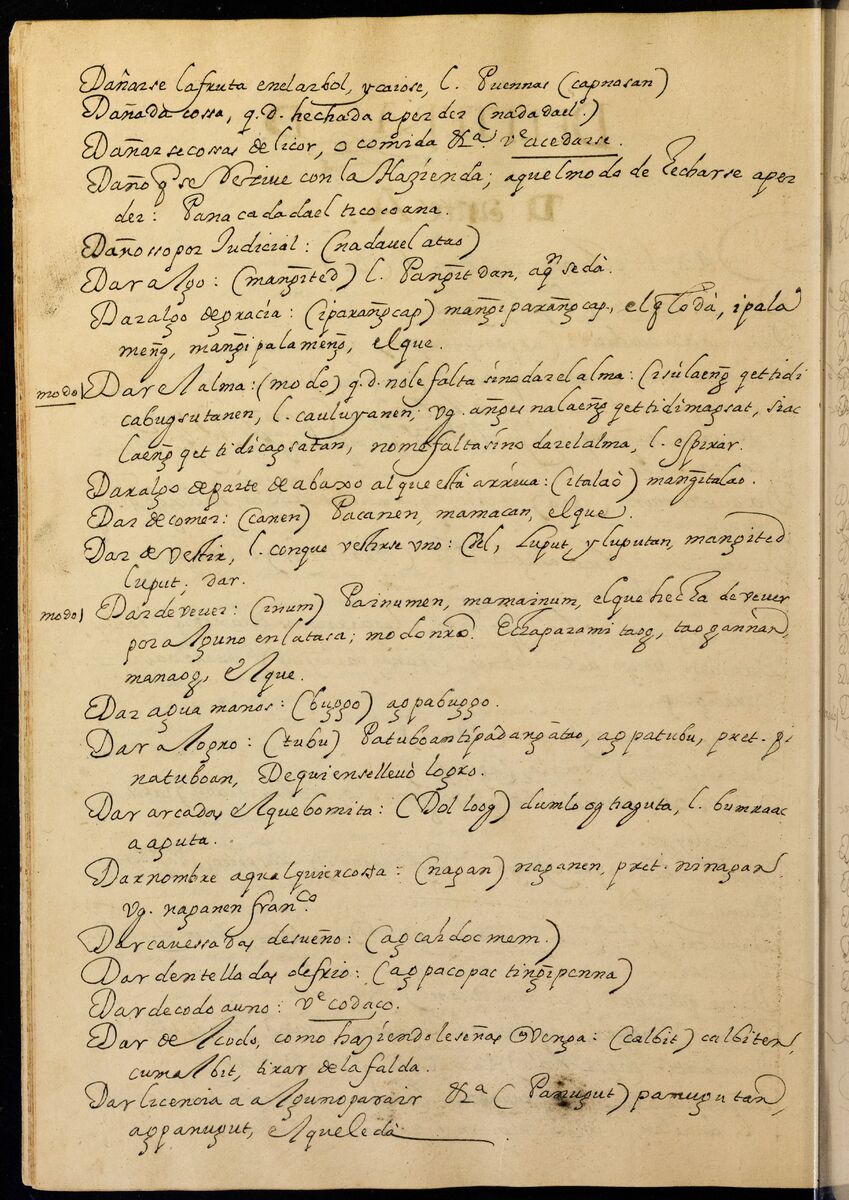 Dañarse la fruta enel arbol, y caiose, l. Puennas (capnosan)
Dañada cossa, q.d. hechada a perder (nadadael.)
Dañarse cossas de licor, o comida &ª. vᵉ acedarse.
Daño qᵉ se Descrive con la Hazienda; aquel modo de Eecharse a per
der: Panacadadael ticocoana.
Dañosso por Iudicial: (nadavel atao)
Dar algo: (mangited) l. Pangitdan, aqⁿ se dà.
Dar algo de gracia: (iparang̃cap) mang̃iparang̃cap, el q̃ lo dà, ipala
meng̃, mang̃ipalameng̃, el que.
modo| Dar el alma: (modo) q.d. nole falta sino dar el alma: (isúlaeng̃ qettidi
cabugsutanen, l. cauluyanen; vg. ang̃us nalaeng̃ qettidimagsat, siac
laeng̃ qettidicagsatan, nome falta sino dar el alma, l. espirar.
Dar algo de parte de abaxo al que està arriva: (italaò) mang̃italao.
Dar de comer: (canen) Pacanen, mamacan, el que.
Dar de vestir, l. conque vestirse uno: luput, y luputan, mang̃ited
luput; dar.
modo| Dar de vever: (inum) Painumen, mamainum, el que hecha de vever
por alguno en la tasa; modo nrõ. taog, taogannan,
manaog, el que.
Dar agua manos: (buggo) agpabuggo.
Dar a logro: (tubu) agpatubu, pret. pi
natuboan, De quien se llevò logro.
Dar arcadas el que bomita: (Dolloog) dumloog tiaguta, l. bumraac
a aguta.
Dar nombre a qualquier cossa: (nagan) naganen, pret. ninagan
vg. naganen franᶜᵒ.
Dar cavessadas de sueño: (agcaidocmem.)
Dar dentelladas de frio: (agpacopac ting̃ipenna)
Dar de codo a uno: vᵉ codaço.
Dar de el codo, como haziendole señas q̃ venga: (calbit) calbiten,
cumalbit, tirar de la falda.
Dar licencia a alguno para ir &ª (Panugut) panugutan,
agpanugut, el que le dà